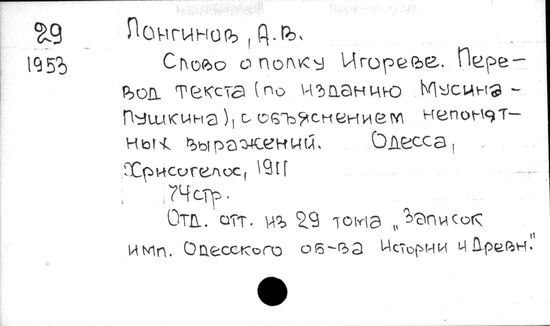 29 Лонгинов, А.В.
1953 Слово о полку Игореве. Пере-
вод текста (по изданию Мусина-
Пушкина), с объяснением непонят-
ных выражений. Одесса,
Хрисогелос, 1911
74стр.
Отд. отт. из 29 тома „Записок
имп. Одесского об-ва Истории и Древн."